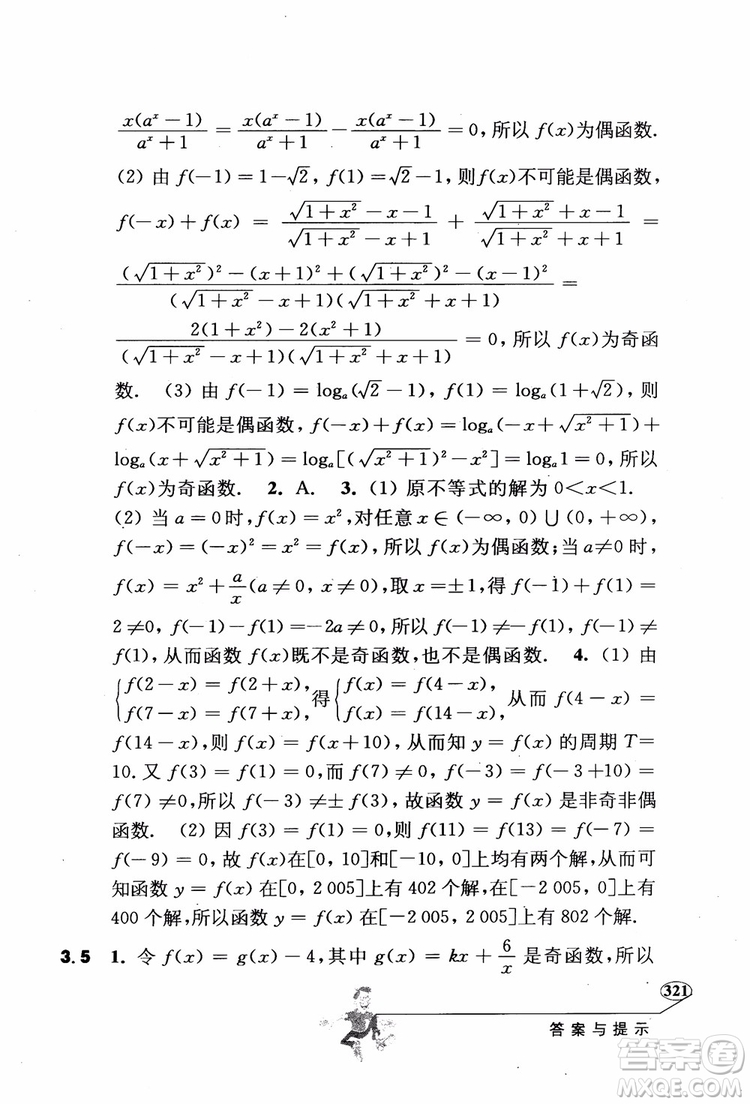 x(aˣ−1)/(aˣ+1) = x(aˣ−1)/(aˣ+1) − x(aˣ−1)/(aˣ+1) = 0, 所以 f(x)为偶函数.
(2) 由 f(−1)=1−√2, f(1)=√2−1, 则f(x)不可能是偶函数,
f(−x)+f(x) = (√(1+x²)−x−1)/(√(1+x²)−x+1) + (√(1+x²)+x−1)/(√(1+x²)+x+1) =
((√(1+x²))²−(x+1)²+(√(1+x²))²−(x−1)²)/((√(1+x²)−x+1)(√(1+x²)+x+1)) =
(2(1+x²)−2(x²+1))/((√(1+x²)−x+1)(√(1+x²)+x+1)) =0, 所以 f(x)为奇函
数. (3) 由 f(−1)=logₐ(√2−1), f(1)=logₐ(1+√2), 则
f(x)不可能是偶函数, f(−x)+f(x)=logₐ(−x+√(x²+1))+
logₐ(x+√(x²+1))=logₐ[(√(x²+1))²−x²]=logₐ1=0, 所以
f(x)为奇函数. 2. A. 3. (1) 原不等式的解为 0<x<1.
(2) 当 a=0时, f(x)=x², 对任意 x∈(−∞, 0)∪(0, +∞),
f(−x)=(−x)²=x²=f(x), 所以 f(x)为偶函数; 当 a≠0 时,
f(x)=x²+a/x(a≠0, x≠0), 取 x=±1, 得 f(−1)+f(1)=
2≠0, f(−1)−f(1)=−2a≠0, 所以 f(−1)≠−f(1), f(−1)≠
f(1), 从而函数 f(x)既不是奇函数, 也不是偶函数. 4. (1) 由
{f(2−x)=f(2+x), f(7−x)=f(7+x) 得 {f(x)=f(4−x), f(x)=f(14−x), 从而 f(4−x)=
f(14−x), 则 f(x)=f(x+10), 从而知 y=f(x) 的周期 T=
10. 又 f(3)=f(1)=0, 而 f(7)≠0, f(−3)=f(−3+10)=
f(7)≠0, 所以 f(−3)≠±f(3), 故函数 y=f(x)是非奇非偶
函数. (2) 因 f(3)=f(1)=0, 则 f(11)=f(13)=f(−7)=
f(−9)=0, 故 f(x)在[0, 10]和[−10, 0]上均有两个解, 从而可
知函数 y=f(x)在[0, 2 005]上有 402 个解, 在[−2 005, 0]上有
400 个解, 所以函数 y=f(x)在[−2 005, 2 005]上有 802 个解.
3.5 1. 令 f(x)=g(x)−4, 其中 g(x)=kx+6/x 是奇函数, 所以
321
答案与提示
答案圈
MXQE.COM